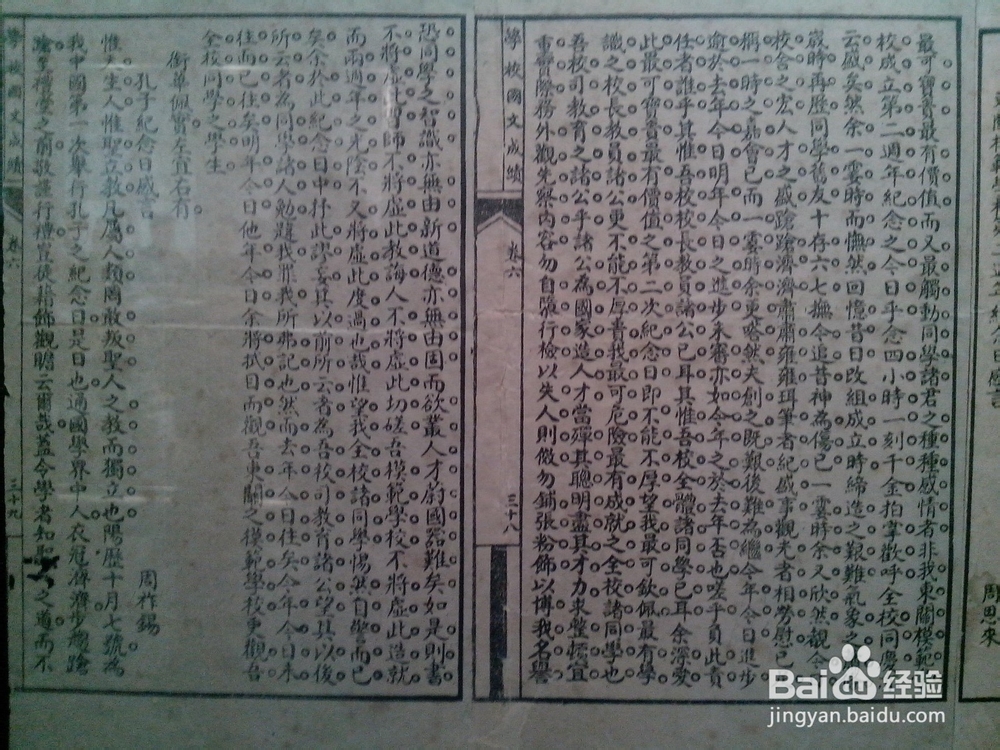 周恩來
最可寶貴最有價值而又最觸動同學諸君之種種感情者非我東關模範
校成立第二週年紀念之今日乎念四小時一刻千金拍掌歡呼全校同慶
云盛矣然余一霎時而憮然回憶昔日改組成立時締造之艱難氣象之
嵗時再歷同學舊友十存六七撫今追昔神為傷已一霎時余又欣然觀今
校舍之宏人才之盛蹌蹌濟濟肅肅雍雍珥筆者紀盛事觀光者相勞慰已
稱一時之嘉會已而一霎時余更喀然夫創之既艱後難為繼今年今日進步
逾於去年今日明年今日之進步未審亦如今年之於去年否也嗟乎負此責
任者誰乎其惟吾校校長教員諸公已耳其惟吾校全體諸同學已耳余深愛
此最可寶貴最有價值之第二次紀念日即不能不厚望我最可欽佩最有學
識之校長教員諸公更不能不厚責我最可危險最有成就之全校諸同學也
吾校司教育之諸公乎諸公為國家造人才當殫其聰明盡其才力求整頓宜
重實際務外觀先察內容勿自隳行檢以失人則倣勿鋪張粉飾以博我名譽
學校國文成績
卷六
三十八
恐同學之智識亦無由新道德亦無由固而欲叢人才蔚國器難矣如是則書
不將虛此習師不將虛此教誨人不將虛此切磋吾模範學校不將虛此造就
而兩週年之光陰不又將虛此度過也哉惟望我全校諸同學惕然自警而已
矣余於此紀念日中抒此謬妄其以前所云者為吾校司教育諸公望其以後
所云者為同學諸人勉韙我罪我所弗記也然而去年今日往矣今年今日未
往而已往矣明年今日他年今日余將拭目而觀吾東關之模範學校更觀吾
全校同學之學生
銜華佩實左宜右有
孔子紀念日感言
周祚錫
惟天生人惟聖立教凡屬人類罔敢叛聖人之教而獨立也陽歷十月七號為
我中國第一次舉行孔子之紀念日是日也通國學界中人衣冠濟濟步趨蹌
蹌至禮堂之前敬謹行禮豈徒藉飾觀瞻云爾哉蓋令學者知聖之道而不
學校國文成績
卷六
三十九
Baidu经验
jingyan.baidu.com